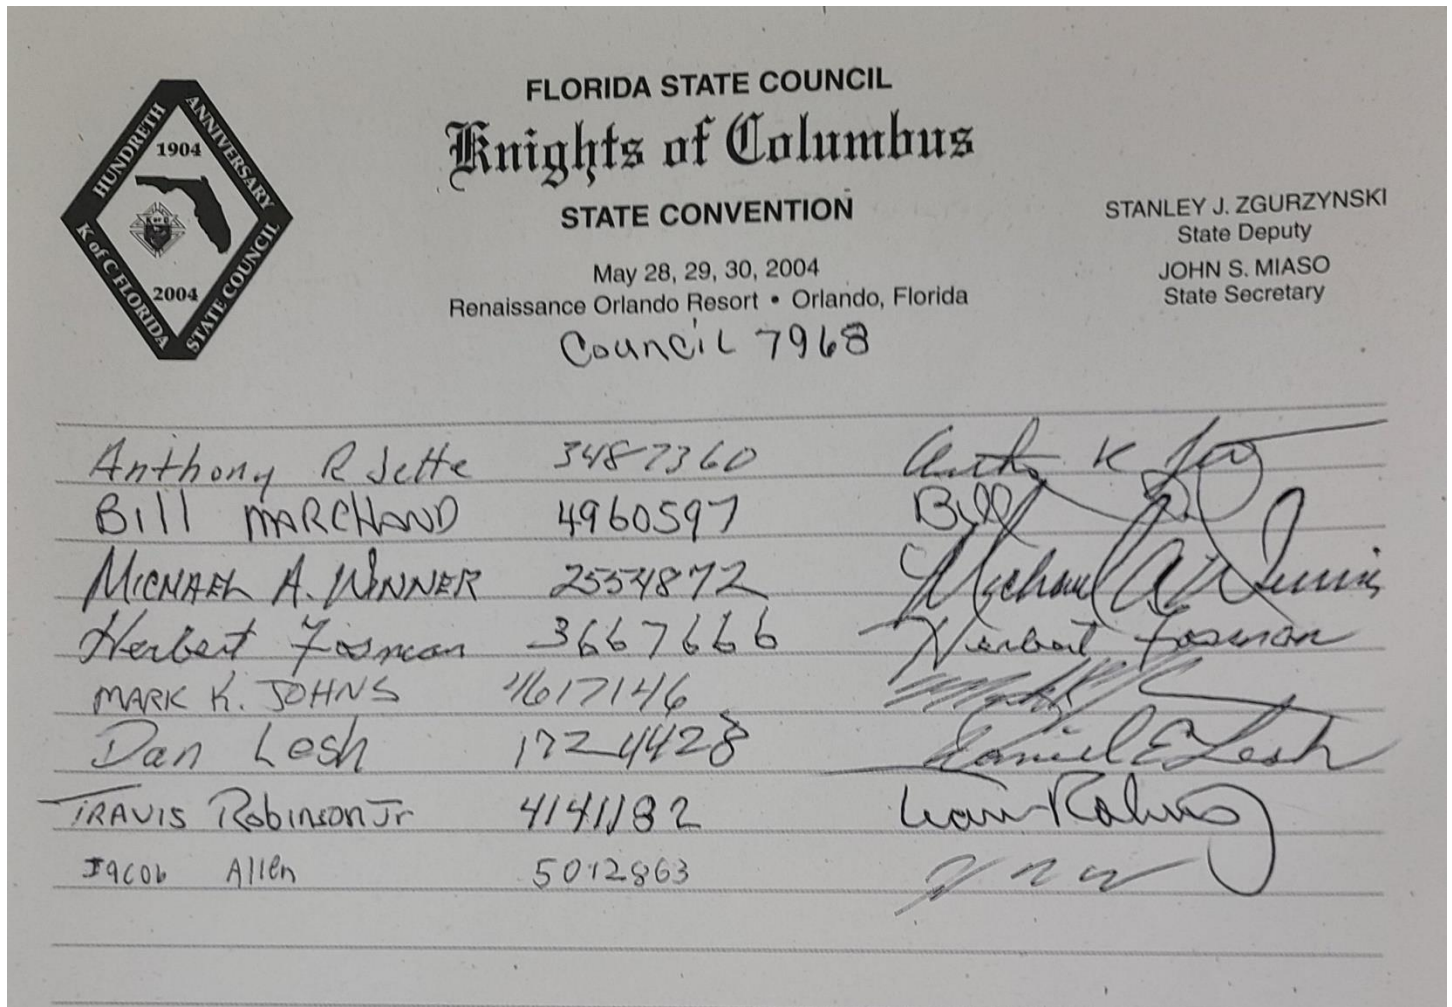 HUNDRETH ANNIVERSARY
1904
K of C FLORIDA STATE COUNCIL
2004
FLORIDA STATE COUNCIL
Knights of Columbus
STATE CONVENTION
May 28, 29, 30, 2004
Renaissance Orlando Resort • Orlando, Florida
STANLEY J. ZGURZYNSKI
State Deputy
JOHN S. MIASO
State Secretary
Council 7968
Anthony R Jette 3487360
Bill MARCHAND 4960597 Bill
MICHAEL A. WINNER 2554872 Michael A Winner
Herbert Fosman 3667666 Herbert Fosman
MARK K. JOHNS 4617146
Dan Lesh 1724428 Daniel E Lesh
TRAVIS Robinson Jr 4141182
Jacob Allen 5012863